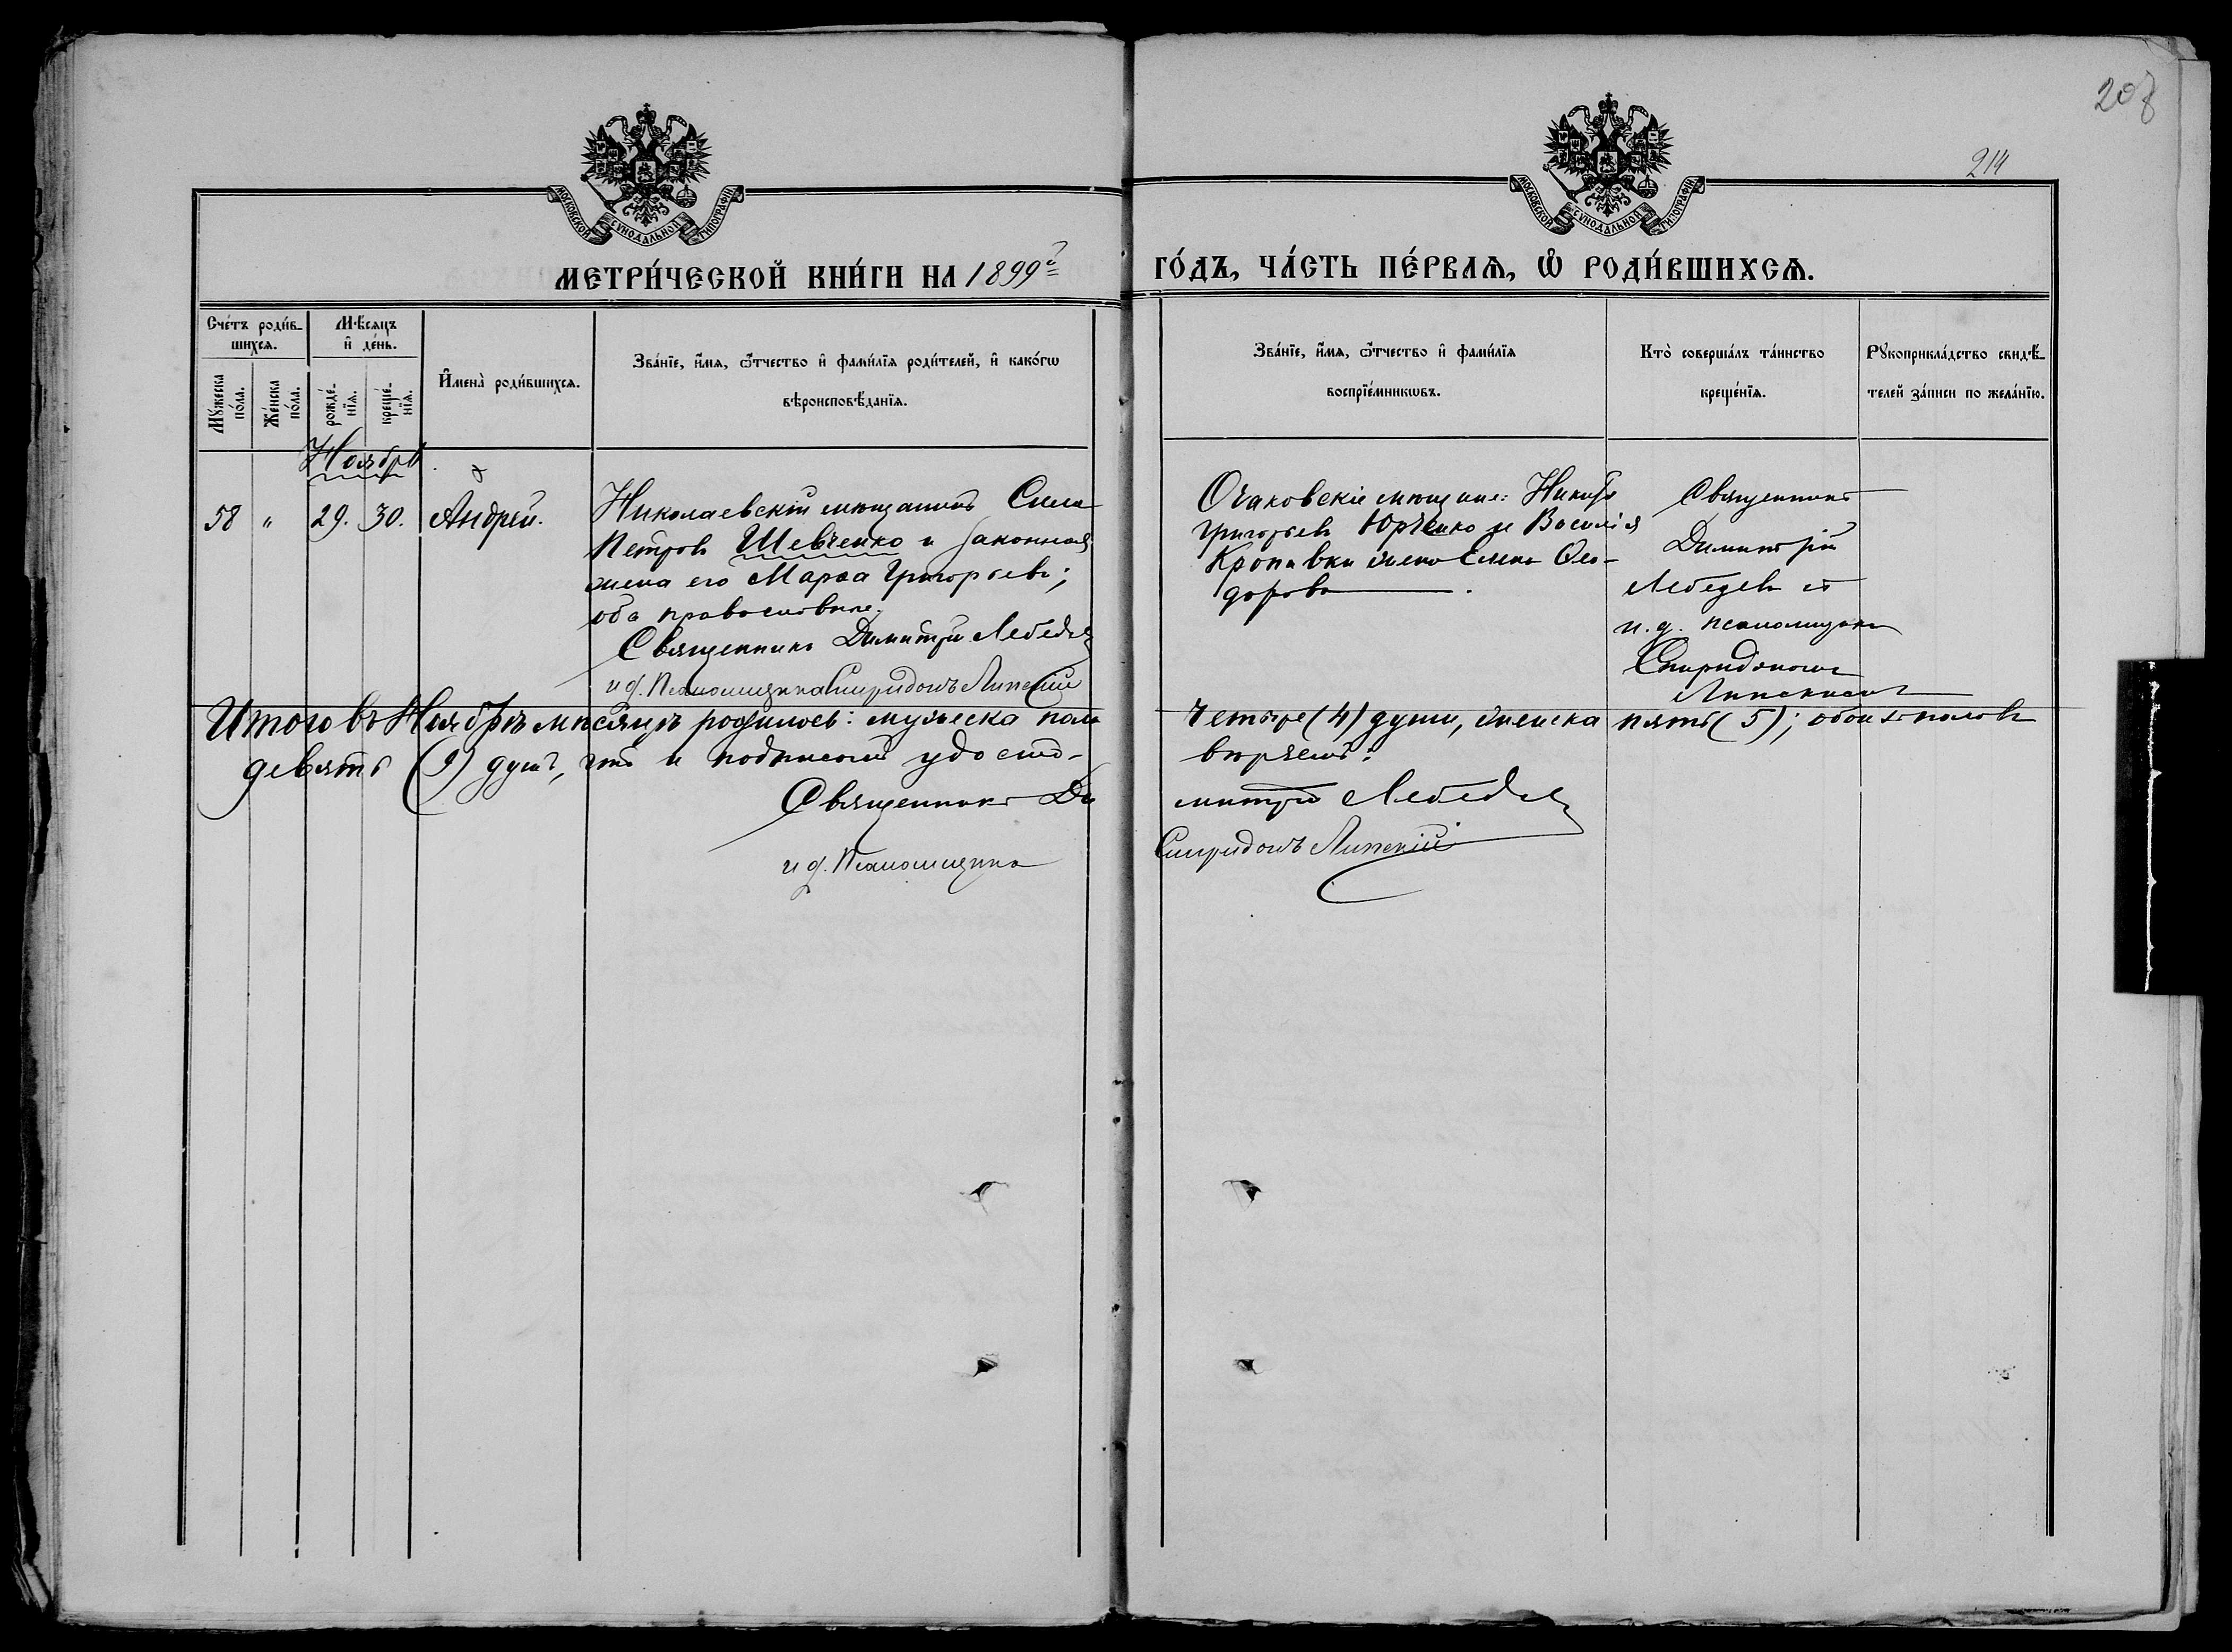 208
214
МОСКОВСКОЙ СѴНОДАЛЬНОЙ ТИПОГРАФІИ
МОСКОВСКОЙ СѴНОДАЛЬНОЙ ТИПОГРАФІИ
МЕТРИ́ЧЕСКОЙ КНИ́ГИ НА 1899й
ГО́ДЪ, ЧА́СТЬ ПЕ́РВАѦ, Ѽ РОДИ́ВШИХСѦ.
Сче́тъ роди́в-
шихсѧ.
Мꙋ́жеска
по́ла.
Же́нска
по́ла.
Мѣ́сѧцъ
и҆ де́нь.
рожде́-
нїѧ.
креще́-
нїѧ.
И҆мена̀ роди́вшихсѧ.
Зва́нїе, и҆́мѧ, ѻ҆́тчество и҆ фами́лїѧ роди́телей, и҆ како́гѡ
вѣроисповѣ́данїѧ.
Зва́нїе, и҆́мѧ, ѻ҆́тчество и҆ фами́лїѧ
воспрїе́мникѡвъ.
Кто̀ соверша́лъ та́инство
креще́нїѧ.
Рꙋкоприкла́дство свидѣ́-
телей за́писи по жела́нїю.
Ноябрь
58 " 29. 30. Андрей.
Николаевскій мѣщанинъ Сила
Петровъ Шевченко и законная
жена его Марѳа Григорьева;
оба православные.
Священникъ Димитрій Лебедевъ
и д. Псаломщика Спиридонъ Липскій
Очаковскіе мѣщане: Никифоръ
Григорьевъ Юрченко и Василія
Кропивки жена Елена Ѳео-
дорова.
Священникъ
Димитрій
Лебедевъ съ
и. д. псаломщика
Спиридономъ
Липскимъ
Итого въ Ноябрѣ мѣсяцѣ родилось: мужеска пола четыре (4) души, женска пять (5); обоихъ половъ
девять (9) душъ, что и подписомъ удосто-вѣряемъ:
Священникъ Димитрій Лебедевъ
и д. Псаломщика Спиридонъ Липскій